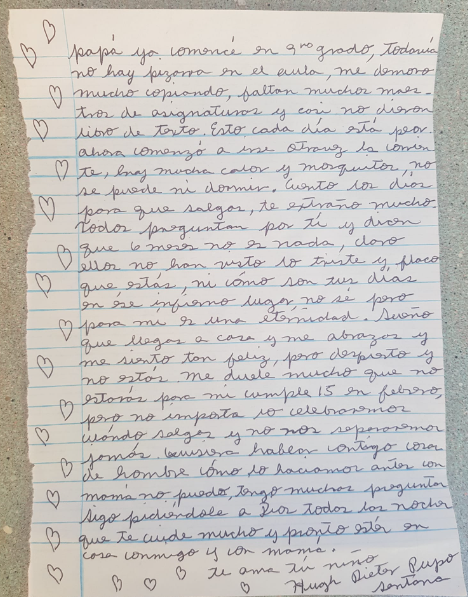 papá ya comencé en 9no grado, todavía
no hay pizarra en el aula, me demoro
mucho copiando, faltan muchos maes-
tros de asignaturas y casi no dieron
libro de texto. Esto cada día está peor
ahora comenzó a irse otravez la corrien
te, hay mucho calor y mosquitos, no
se puede ni dormir. Cuento los días
para que salgas, te extraño mucho.
Todos preguntan por tí y dicen
que 6 meses no es nada, claro
ellos no han visto lo triste y flaco
que estás, ni cómo son tus días
en ése infierno lugar, no sé pero
para mi es una eternidad. Sueño
que llegas a casa y me abrazas y
me siento tan feliz, pero despierto y
no estas. Me duele mucho que no
estarás para mi cumple 15 en febrero,
pero no importa lo celebraremos
cuándo salgas y no nos separaremos
jamás. Quisiera hablar contigo cosas
de hombre cómo lo hacíamos antes con
mamá no puedo, tengo muchas preguntas
Sigo pidiéndole a Dios todas las noches
que te cuide mucho y pronto estés en
casa conmigo y con mamá.
te ama tú niño
Hugh Dieter Pupo
Santana